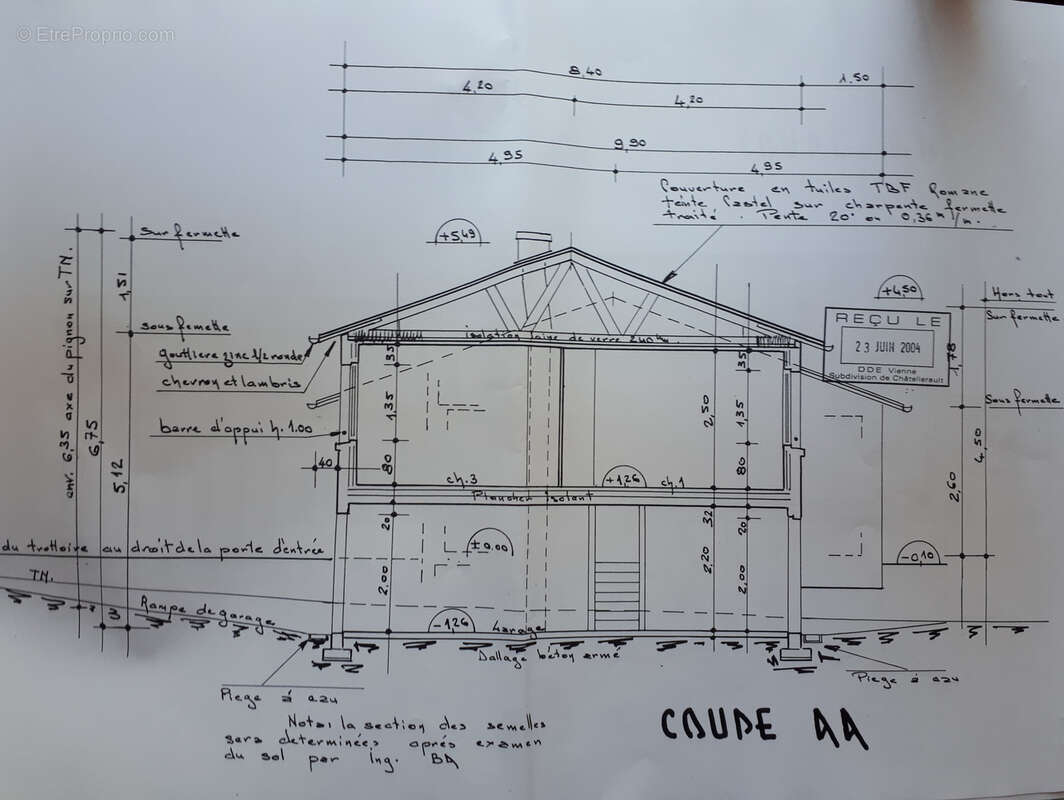 © EtreProprio.com
8,40
4,20
4,20
1,50
9,90
4,95
4,95
Couverture en tuiles TBF Romane
teinte Castel sur charpente fermette
traité. Pente 20° ou 0,36 m/m.
+5,49
sur fermette
sous femette
gouttiere zinc 1/2 ronde
chevron et lambris
barre d'appui h. 1.00
env. 6,35 axe du pignon sur TN.
6,75
5,12
1,51
+4,50
Hors tout
Sur fermette
REÇU LE
23 JUIN 2004
DDE Vienne
Subdivision de Châtellerault
1,78
Sous fermette
4,50
2,60
isolation laine de verre 240
35
1,35
80
2,50
35
1,35
80
40
ch.3
+1,26
ch.1
Plancher isolant
20
32
20
±0.00
2,00
2,20
2,00
-0,10
du trottoire au droit de la porte d'entrée
TN.
Rampe de garage
3
-1,26
Garage
Dallage béton armé
Piege à eau
Piege à eau
Nota: la section des semelles
sera determinées aprés examen
du sol par Ing. BA
COUPE AA